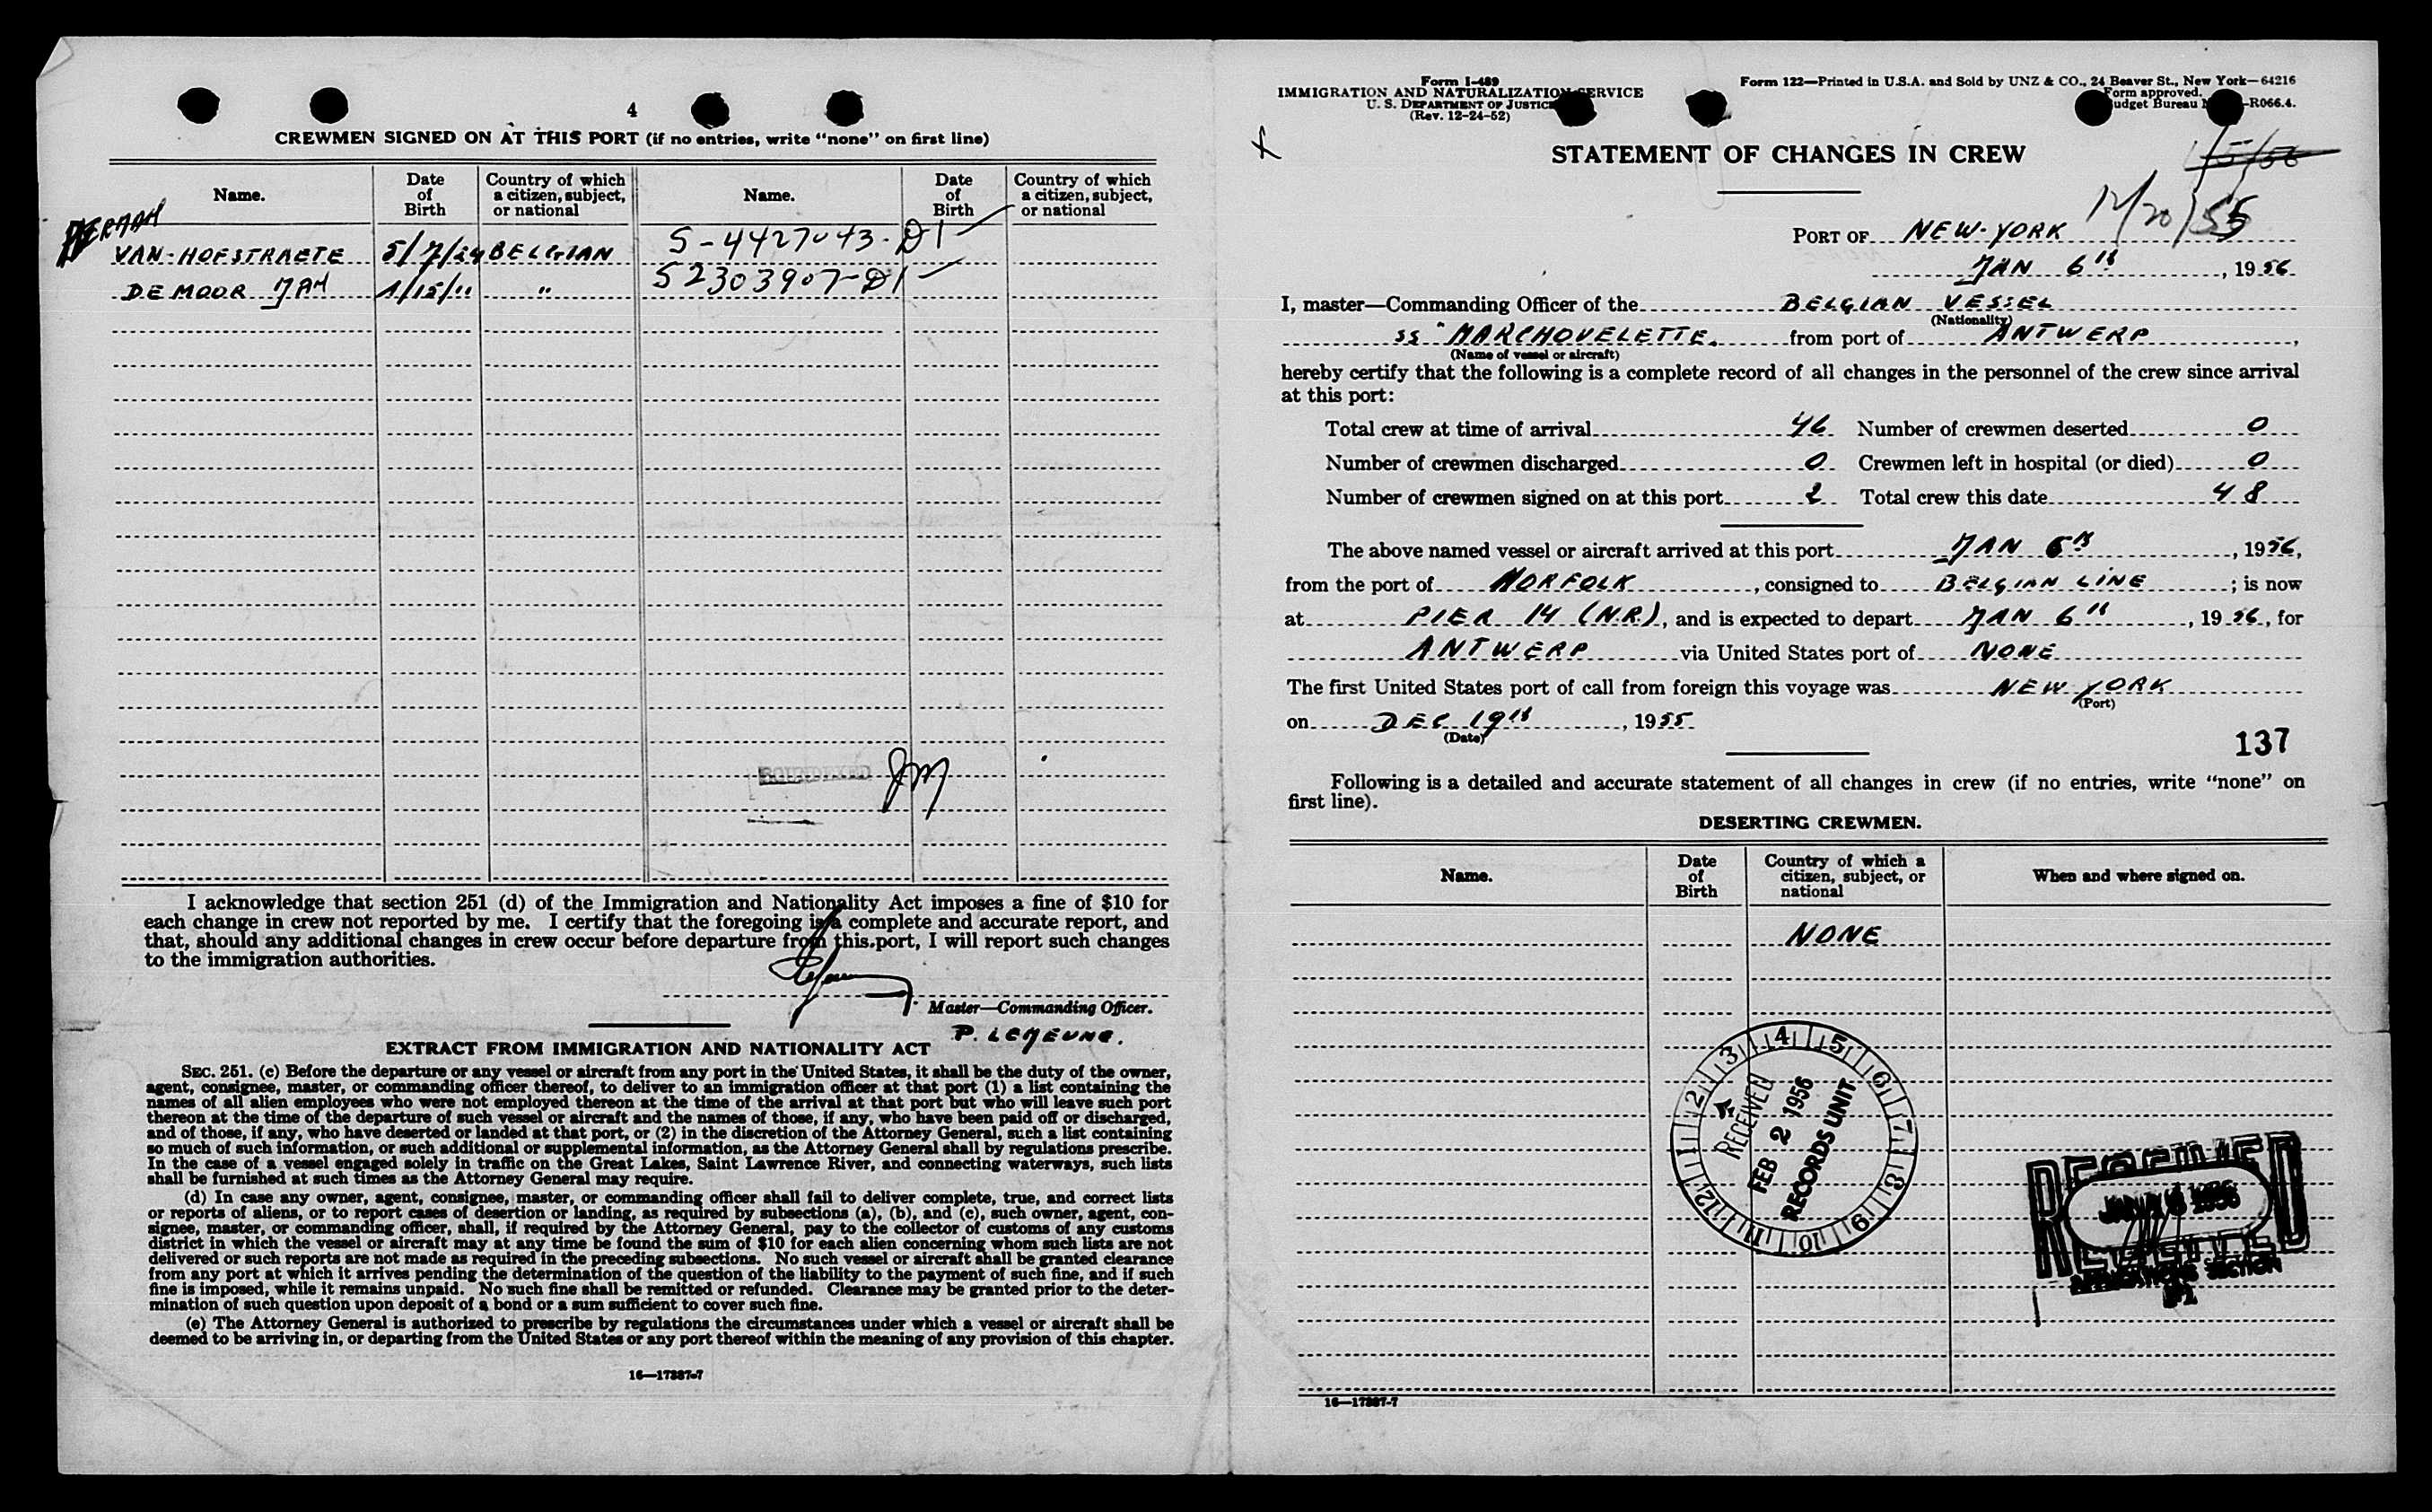 4
CREWMEN SIGNED ON AT THIS PORT (if no entries, write "none" on first line)
Name. Date of Birth Country of which a citizen, subject, or national Name. Date of Birth Country of which a citizen, subject, or national
HERMAN
VAN-HOFSTRAETE 5/7/24 BELGIAN S-4427043-D1
DEMOOR JAN 1/15/11 " S2303907-D1
JM
I acknowledge that section 251 (d) of the Immigration and Nationality Act imposes a fine of $10 for
each change in crew not reported by me. I certify that the foregoing is a complete and accurate report, and
that, should any additional changes in crew occur before departure from this port, I will report such changes
to the immigration authorities.
Master—Commanding Officer.
P. LEJEUNE.
EXTRACT FROM IMMIGRATION AND NATIONALITY ACT
SEC. 251. (c) Before the departure or any vessel or aircraft from any port in the United States, it shall be the duty of the owner,
agent, consignee, master, or commanding officer thereof, to deliver to an immigration officer at that port (1) a list containing the
names of all alien employees who were not employed thereon at the time of the arrival at that port but who will leave such port
thereon at the time of the departure of such vessel or aircraft and the names of those, if any, who have been paid off or discharged,
and of those, if any, who have deserted or landed at that port, or (2) in the discretion of the Attorney General, such a list containing
so much of such information, or such additional or supplemental information, as the Attorney General shall by regulations prescribe.
In the case of a vessel engaged solely in traffic on the Great Lakes, Saint Lawrence River, and connecting waterways, such lists
shall be furnished at such times as the Attorney General may require.
(d) In case any owner, agent, consignee, master, or commanding officer shall fail to deliver complete, true, and correct lists
or reports of aliens, or to report cases of desertion or landing, as required by subsections (a), (b), and (c), such owner, agent, con-
signee, master, or commanding officer, shall, if required by the Attorney General, pay to the collector of customs of any customs
district in which the vessel or aircraft may at any time be found the sum of $10 for each alien concerning whom such lists are not
delivered or such reports are not made as required in the preceding subsections. No such vessel or aircraft shall be granted clearance
from any port at which it arrives pending the determination of the question of the liability to the payment of such fine, and if such
fine is imposed, while it remains unpaid. No such fine shall be remitted or refunded. Clearance may be granted prior to the deter-
mination of such question upon deposit of a bond or a sum sufficient to cover such fine.
(e) The Attorney General is authorized to prescribe by regulations the circumstances under which a vessel or aircraft shall be
deemed to be arriving in, or departing from the United States or any port thereof within the meaning of any provision of this chapter.
16—17387-7
Form I-489
IMMIGRATION AND NATURALIZATION SERVICE
U. S. DEPARTMENT OF JUSTICE
(Rev. 12-24-52)
Form 122—Printed in U.S.A. and Sold by UNZ & CO., 24 Beaver St., New York—64216
Form approved.
Budget Bureau -R066.4.
X
STATEMENT OF CHANGES IN CREW
1/5/56
12/20/55
PORT OF NEW-YORK
JAN 6th, 1956
I, master—Commanding Officer of the BELGIAN VESSEL
(Nationality)
SS "MARCHOVELETTE. from port of ANTWERP,
(Name of vessel or aircraft)
hereby certify that the following is a complete record of all changes in the personnel of the crew since arrival
at this port:
Total crew at time of arrival 46 Number of crewmen deserted 0
Number of crewmen discharged 0 Crewmen left in hospital (or died) 0
Number of crewmen signed on at this port 2 Total crew this date 48
The above named vessel or aircraft arrived at this port JAN 5th, 1956,
from the port of NORFOLK, consigned to BELGIAN LINE; is now
at PIER 14 (N.R.), and is expected to depart JAN 6th, 1956, for
ANTWERP via United States port of NONE
The first United States port of call from foreign this voyage was NEW YORK
(Port)
on DEC 19th, 1955
(Date)
137
Following is a detailed and accurate statement of all changes in crew (if no entries, write "none" on
first line).
DESERTING CREWMEN.
Name. Date of Birth Country of which a citizen, subject, or national When and where signed on.
NONE
1 2 3 4 5 6 7 8 9 10 11 12
RECEIVED
FEB 2 1956
RECORDS UNIT
RECEIVED
JAN 1956
SECTION
16—17387-7